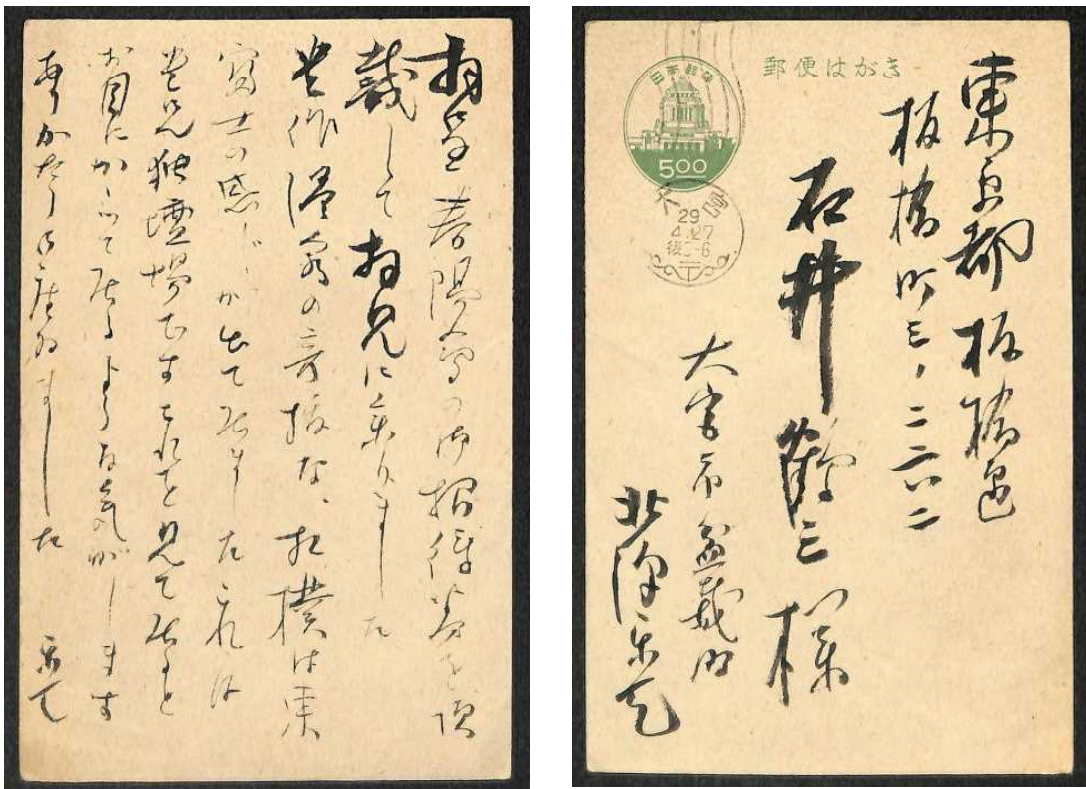 拝啓 春陽会の御招待券を頂
戴して拝見に参りました
貴作 の奇抜な、相撲は東
富士の感じが出て居ました これは
貴兄独壇場です これを見て居ると
お目にかかつて居るような気がします
ありがたう御座ゐました 楽天
郵便はがき
日本郵便
500
大宮
29
4.27
東京都板橋区
板橋町三ノ二二六二
石井鶴三様
大宮市盆栽町
北澤楽天